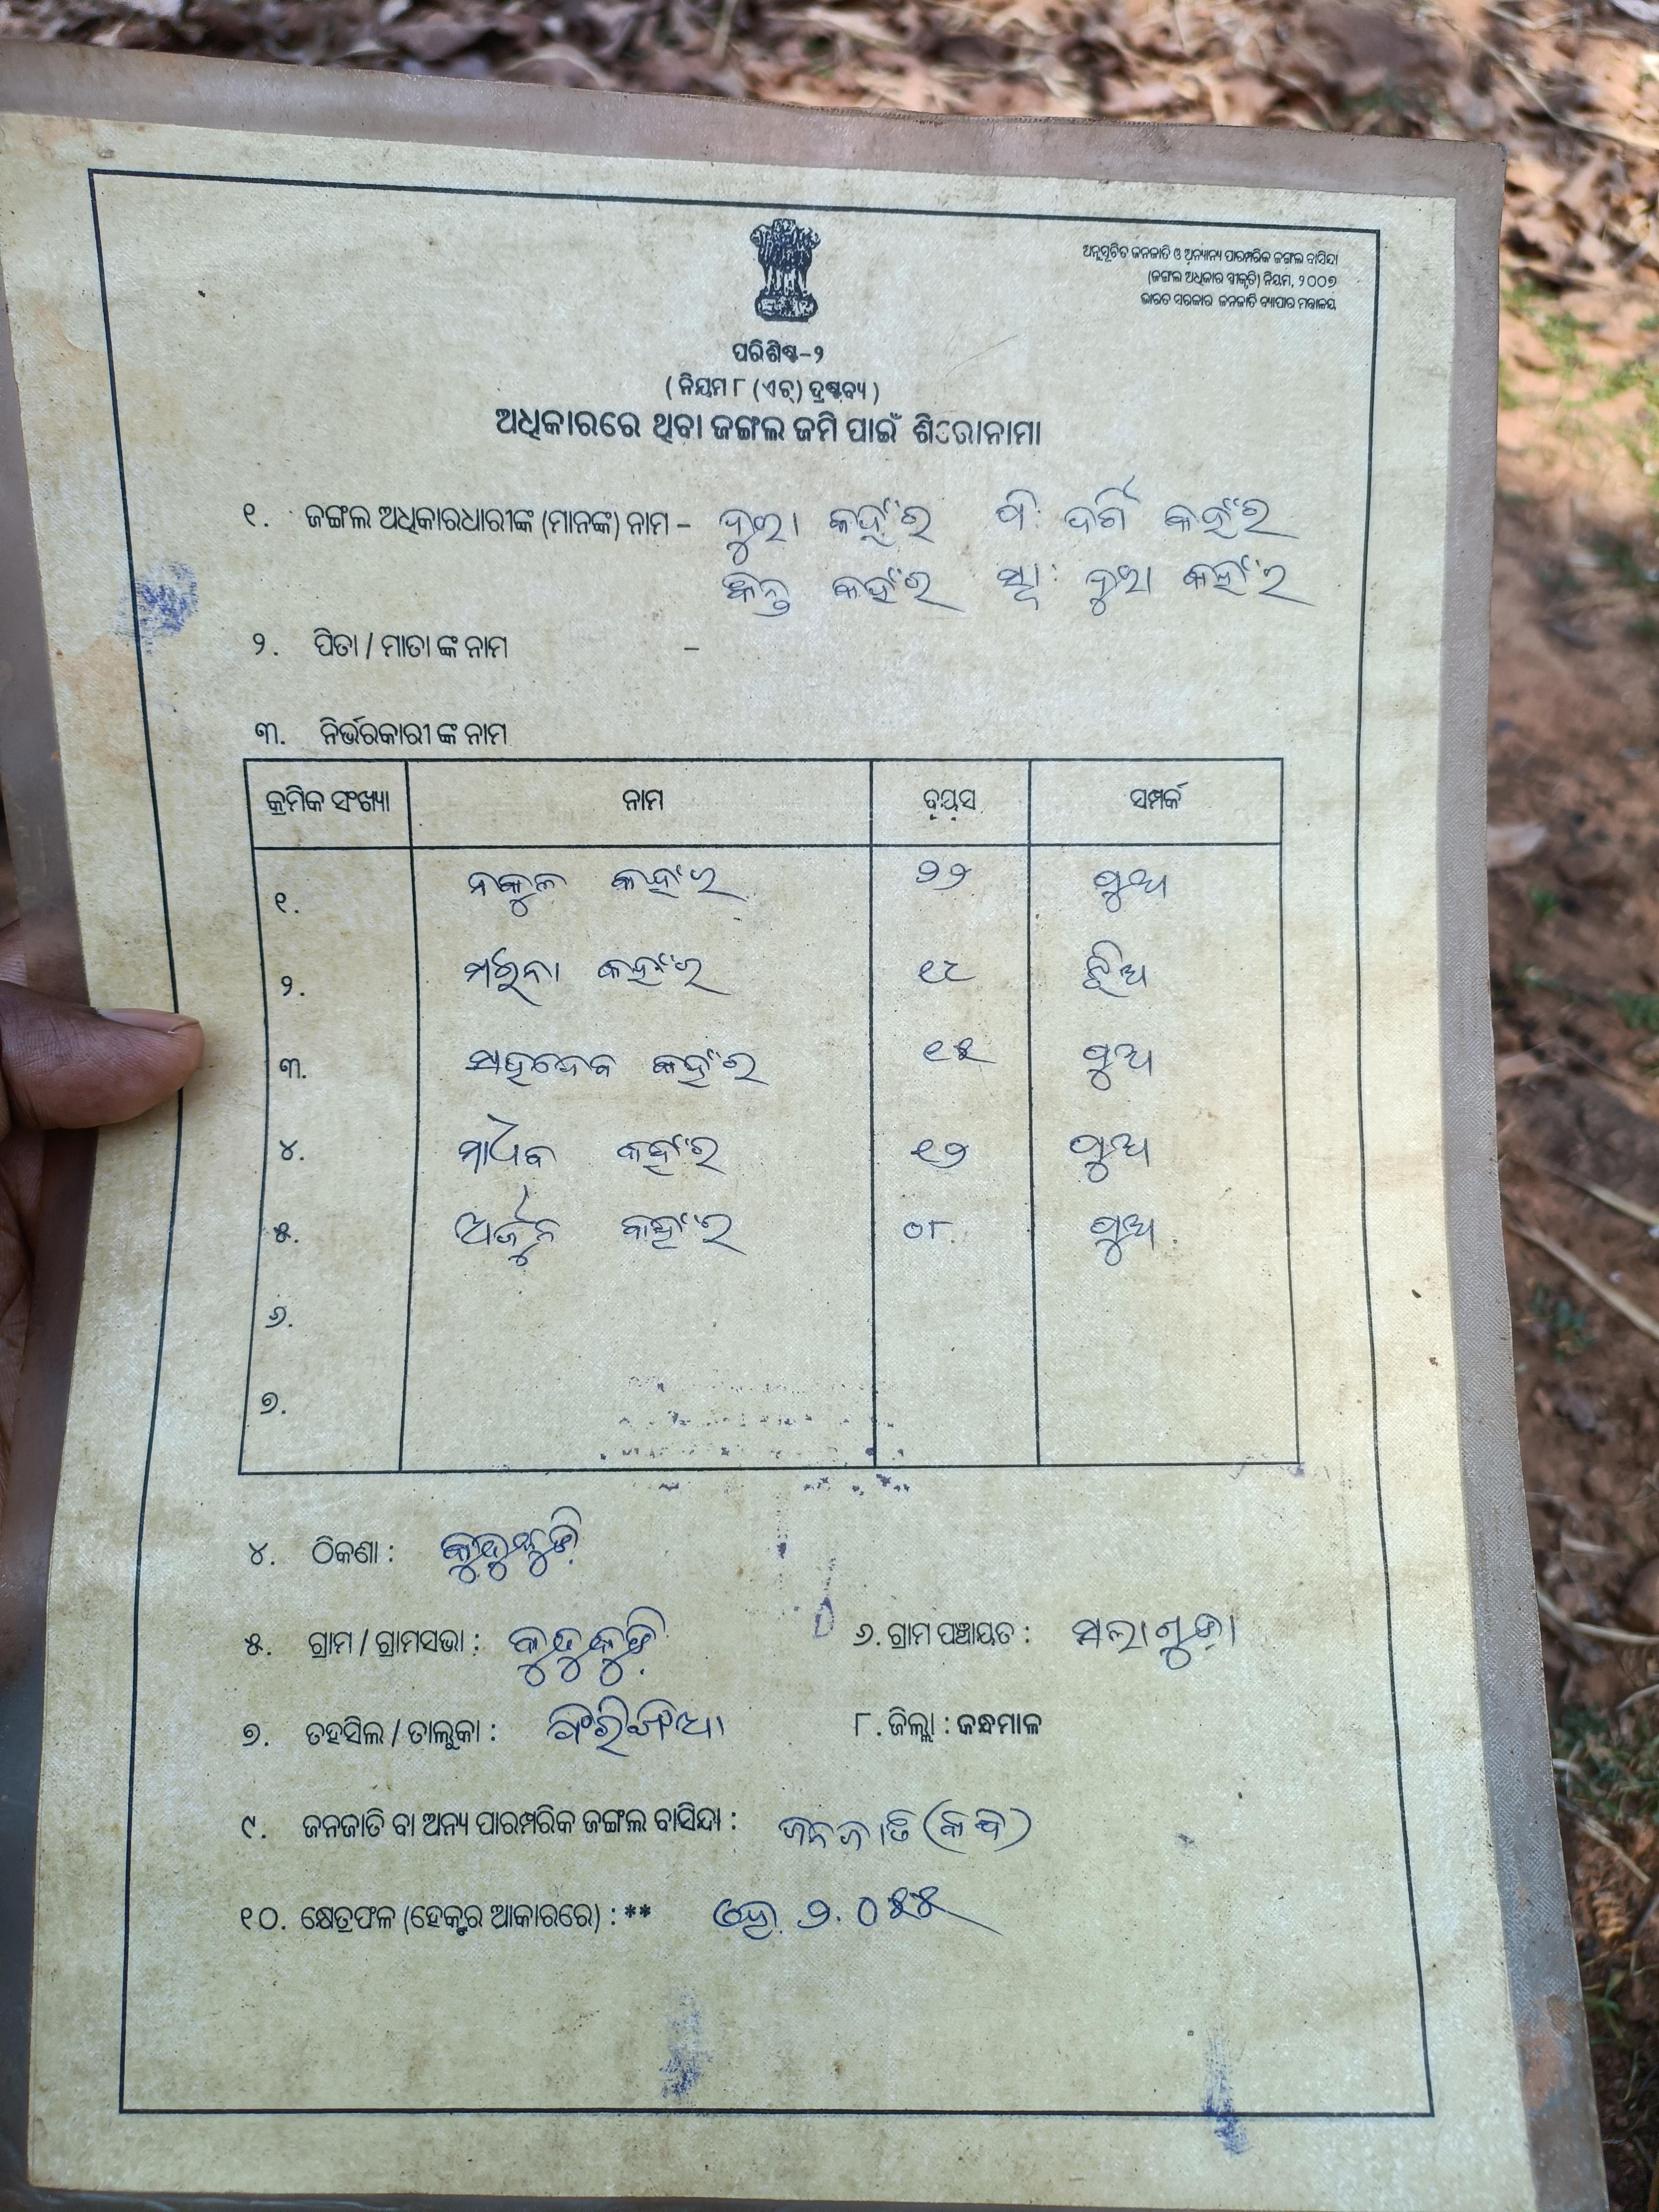 ଅନୁସୂଚିତ ଜନଜାତି ଓ ଅନ୍ୟାନ୍ୟ ପାରମ୍ପରିକ ଜଙ୍ଗଲ ବାସିନ୍ଦା
(ଜଙ୍ଗଲ ଅଧିକାର ସ୍ୱୀକୃତି) ନିୟମ, ୨୦୦୭
ଭାରତ ସରକାର ଜନଜାତି ବ୍ୟାପାର ମନ୍ତ୍ରାଳୟ
ପରିଶିଷ୍ଟ-୨
( ନିୟମ ୮ (ଏଚ୍) ଦ୍ରଷ୍ଟବ୍ୟ )
ଅଧିକାରରେ ଥିବା ଜଙ୍ଗଲ ଜମି ପାଇଁ ଶିରୋନାମା
୧. ଜଙ୍ଗଲ ଅଧିକାରଧାରୀଙ୍କ (ମାନଙ୍କ) ନାମ - କହଁର ପି: କହଁର
କହଁର ସ୍ୱା: କହଁର
୨. ପିତା / ମାତା ଙ୍କ ନାମ -
୩. ନିର୍ଭରକାରୀ ଙ୍କ ନାମ
କ୍ରମିକ ସଂଖ୍ୟା ନାମ ବୟସ ସମ୍ପର୍କ
୧. ନକୁଳ କହଁର ୨୨ ପୁଅ
୨. କହଁର ୧୮ ଝିଅ
୩. ସହଦେବ କହଁର ୧୫ ପୁଅ
୪. ମାଧବ କହଁର ୧୨ ପୁଅ
୫. ଅର୍ଜୁନ କହଁର ୦୮ ପୁଅ
୬.
୭.
୪. ଠିକଣା :
୫. ଗ୍ରାମ / ଗ୍ରାମସଭା : ୬. ଗ୍ରାମ ପଞ୍ଚାୟତ :
୭. ତହସିଲ / ତାଲୁକା : ୮. ଜିଲ୍ଲା : କନ୍ଧମାଳ
୯. ଜନଜାତି ବା ଅନ୍ୟ ପାରମ୍ପରିକ ଜଙ୍ଗଲ ବାସିନ୍ଦା : ଜନଜାତି (କନ୍ଧ)
୧୦. କ୍ଷେତ୍ରଫଳ (ହେକ୍ଟର ଆକାରରେ) : ** ହେ. ୨.୦୫୫